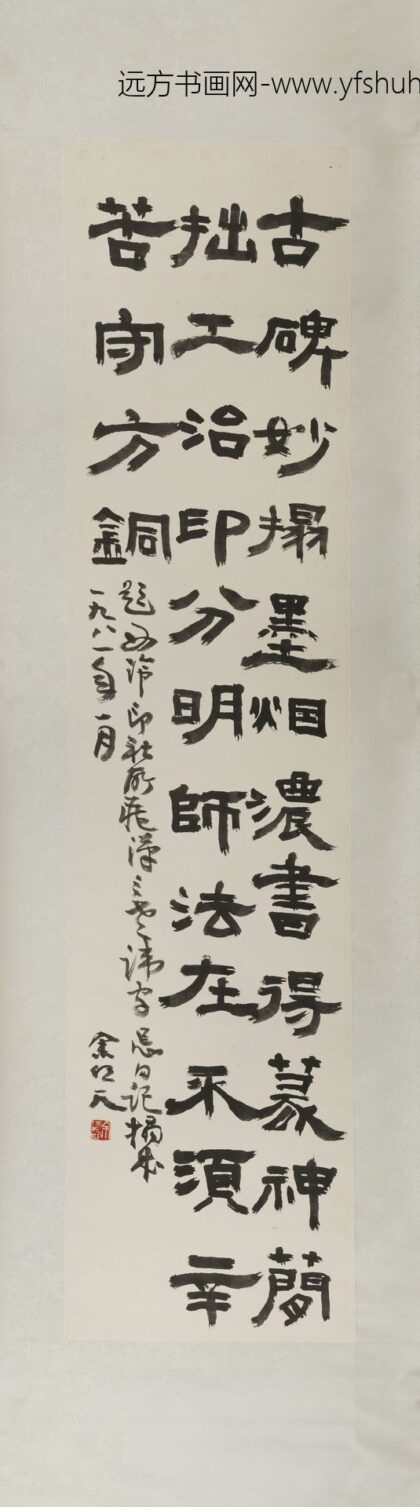 远方书画网-www.yfshuh
古碑妙搨墨烟濃書得篆神簡
拙工治印分明師法在不須辛
苦守方銅
題西泠印社所藏漢三老諱字忌日記搨本
一九八一年一月
余任天